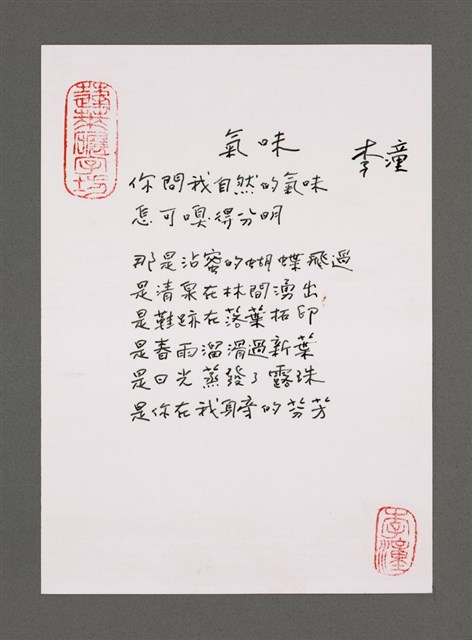 氣味
李潼
你問我自然的氣味
怎可嗅得分明
那是沾蜜的蝴蝶飛過
是清泉在林間湧出
是鞋跡在落葉拓印
是春雨溜滑過新葉
是日光蒸發了露珠
是你在我身旁的芬芳
李潼